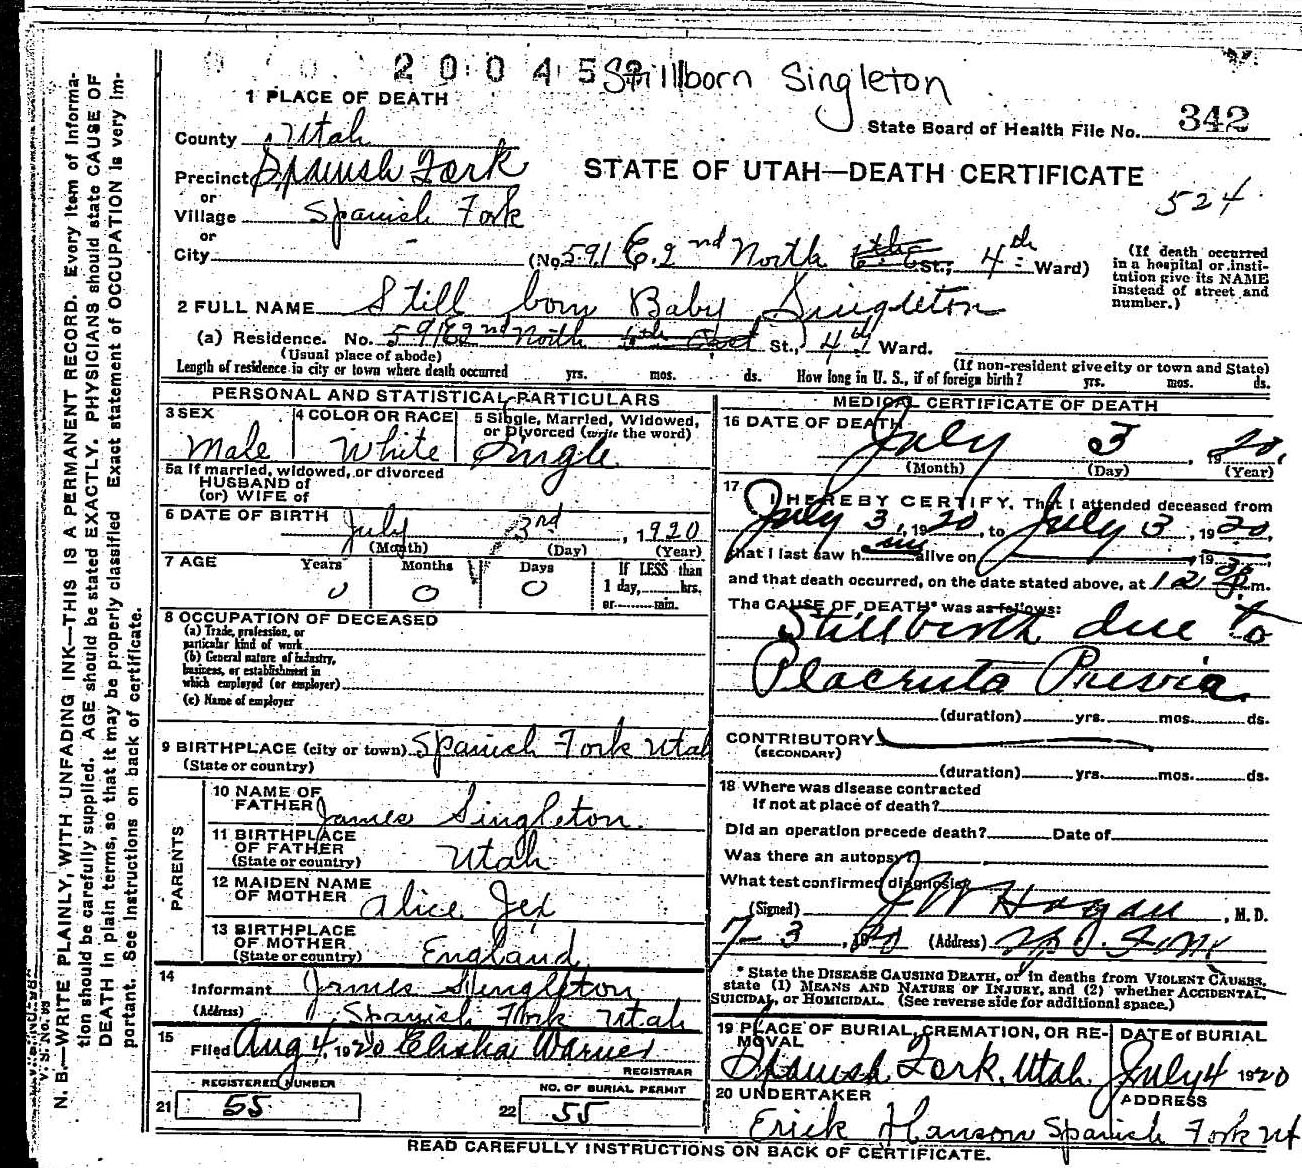 2 0 0 4 5 Stillborn Singleton
1 PLACE OF DEATH
State Board of Health File No. 342
County Utah
STATE OF UTAH—DEATH CERTIFICATE
524
Precinct Spanish Fork
or
Village Spanish Fork
or
City - (No. 591 E. 2nd North St.; 4th Ward)
(If death occurred in a hospital or institution give its NAME instead of street and number.)
2 FULL NAME Still born Baby Singleton
(a) Residence. No. 591 E 2nd North 6th East St., 4th Ward.
(Usual place of abode) (If non-resident give city or town and State)
Length of residence in city or town where death occurred yrs. mos. ds. How long in U. S., if of foreign birth? yrs. mos. ds.
PERSONAL AND STATISTICAL PARTICULARS
3 SEX Male
4 COLOR OR RACE White
5 Single, Married, Widowed, or Divorced (write the word) Single
5a If married, widowed, or divorced
HUSBAND of
(or) WIFE of
6 DATE OF BIRTH July 3rd, 1920
(Month) (Day) (Year)
7 AGE Years Months Days If LESS than
0 0 0 1 day,......hrs.
or......min.
8 OCCUPATION OF DECEASED
(a) Trade, profession, or
particular kind of work
(b) General nature of industry,
business, or establishment in
which employed (or employer)
(c) Name of employer
9 BIRTHPLACE (city or town) Spanish Fork Utah
(State or country)
PARENTS
10 NAME OF FATHER James Singleton
11 BIRTHPLACE OF FATHER Utah
(State or country)
12 MAIDEN NAME OF MOTHER Alice Jex
13 BIRTHPLACE OF MOTHER England
(State or country)
14
Informant James Singleton
(Address) Spanish Fork Utah
15
Filed Aug 4, 1920 Elisha Warner
REGISTRAR
REGISTERED NUMBER
21 55
NO. OF BURIAL PERMIT
22 55
MEDICAL CERTIFICATE OF DEATH
16 DATE OF DEATH
July 3, 1920.
(Month) (Day) (Year)
17
I HEREBY CERTIFY, That I attended deceased from
July 3, 1920, to July 3, 1920,
that I last saw him alive on , 19 ,
and that death occurred, on the date stated above, at 12 m.
The CAUSE OF DEATH* was as follows:
Stillbirth due to
Placenta Previa
(duration) yrs. mos. ds.
CONTRIBUTORY
(SECONDARY)
(duration) yrs. mos. ds.
18 Where was disease contracted
if not at place of death?
Did an operation precede death? Date of
Was there an autopsy?
What test confirmed diagnosis?
(Signed) J W Hagan, M. D.
7-3, 1920 (Address)
* State the DISEASE CAUSING DEATH, or in deaths from VIOLENT CAUSES,
state (1) MEANS AND NATURE OF INJURY, and (2) whether ACCIDENTAL,
SUICIDAL, or HOMICIDAL. (See reverse side for additional space.)
19 PLACE OF BURIAL, CREMATION, OR REMOVAL
Spanish Fork, Utah
DATE of BURIAL
July 4 1920
20 UNDERTAKER ADDRESS
Erick Hanson Spanish Fork Ut
READ CAREFULLY INSTRUCTIONS ON BACK OF CERTIFICATE.
N. B.—WRITE PLAINLY, WITH UNFADING INK—THIS IS A PERMANENT RECORD. Every item of informa-
tion should be carefully supplied. AGE should be stated EXACTLY. PHYSICIANS should state CAUSE OF
DEATH in plain terms, so that it may be properly classified. Exact statement of OCCUPATION is very im-
portant. See instructions on back of certificate.